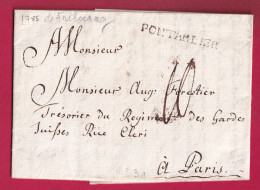 1785 de
PONTARLIER
A Monsieur
Monsieur Aug Forestier
Trésorier du Regiment des Gardes
Suisses Rue Cleri
à Paris.